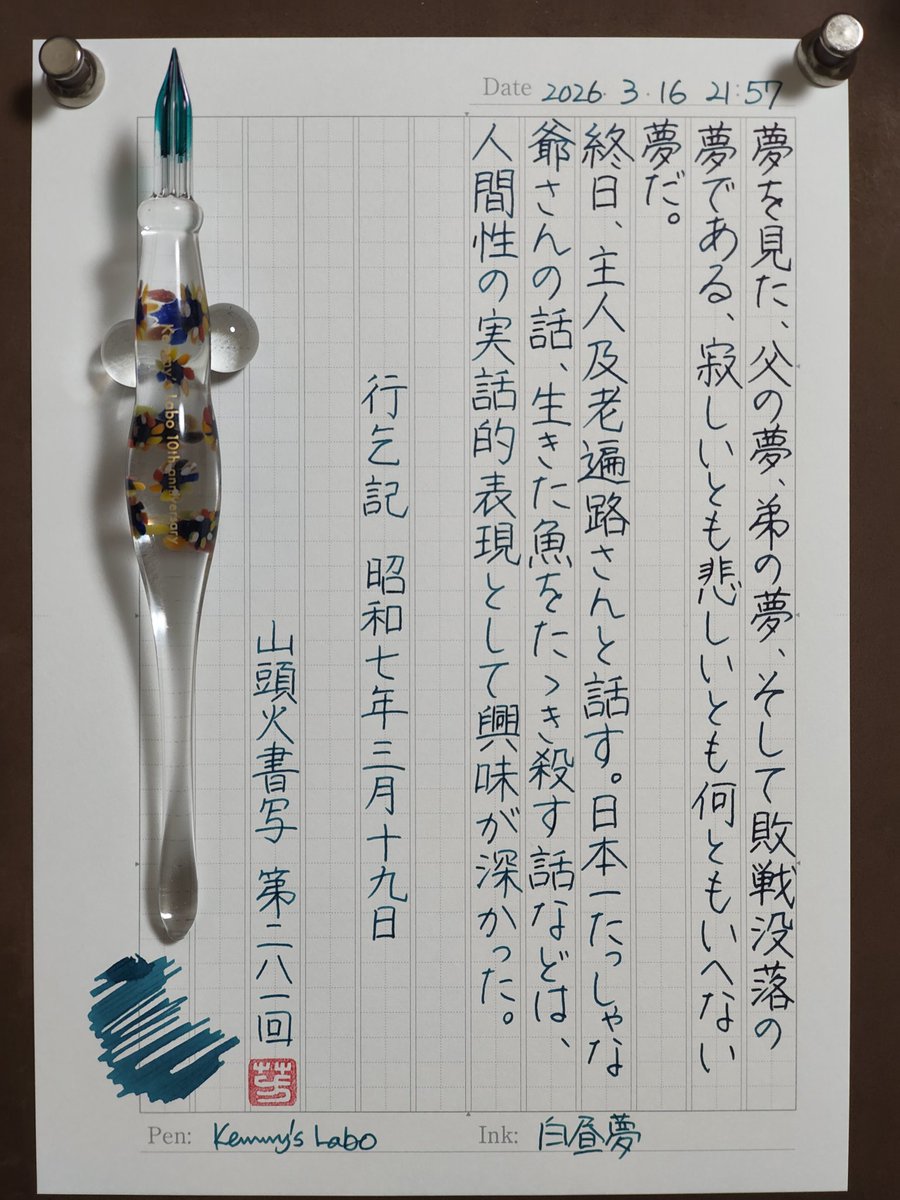 Date 2026.3.16 21:57
夢を見た、父の夢、弟の夢、そして敗戦没落の
夢である、寂しいとも悲しいとも何ともいへない
夢だ。
終日、主人及老遍路さんと話す。日本一たっしゃな
爺さんの話、生きた魚をたゝき殺す話などは、
人間性の実話的表現として興味が深かった。
行乞記 昭和七年三月十九日
山頭火書写 第二八一回
Labo 10th anniversary
Pen: Kemmy's Labo
Ink: 白昼夢